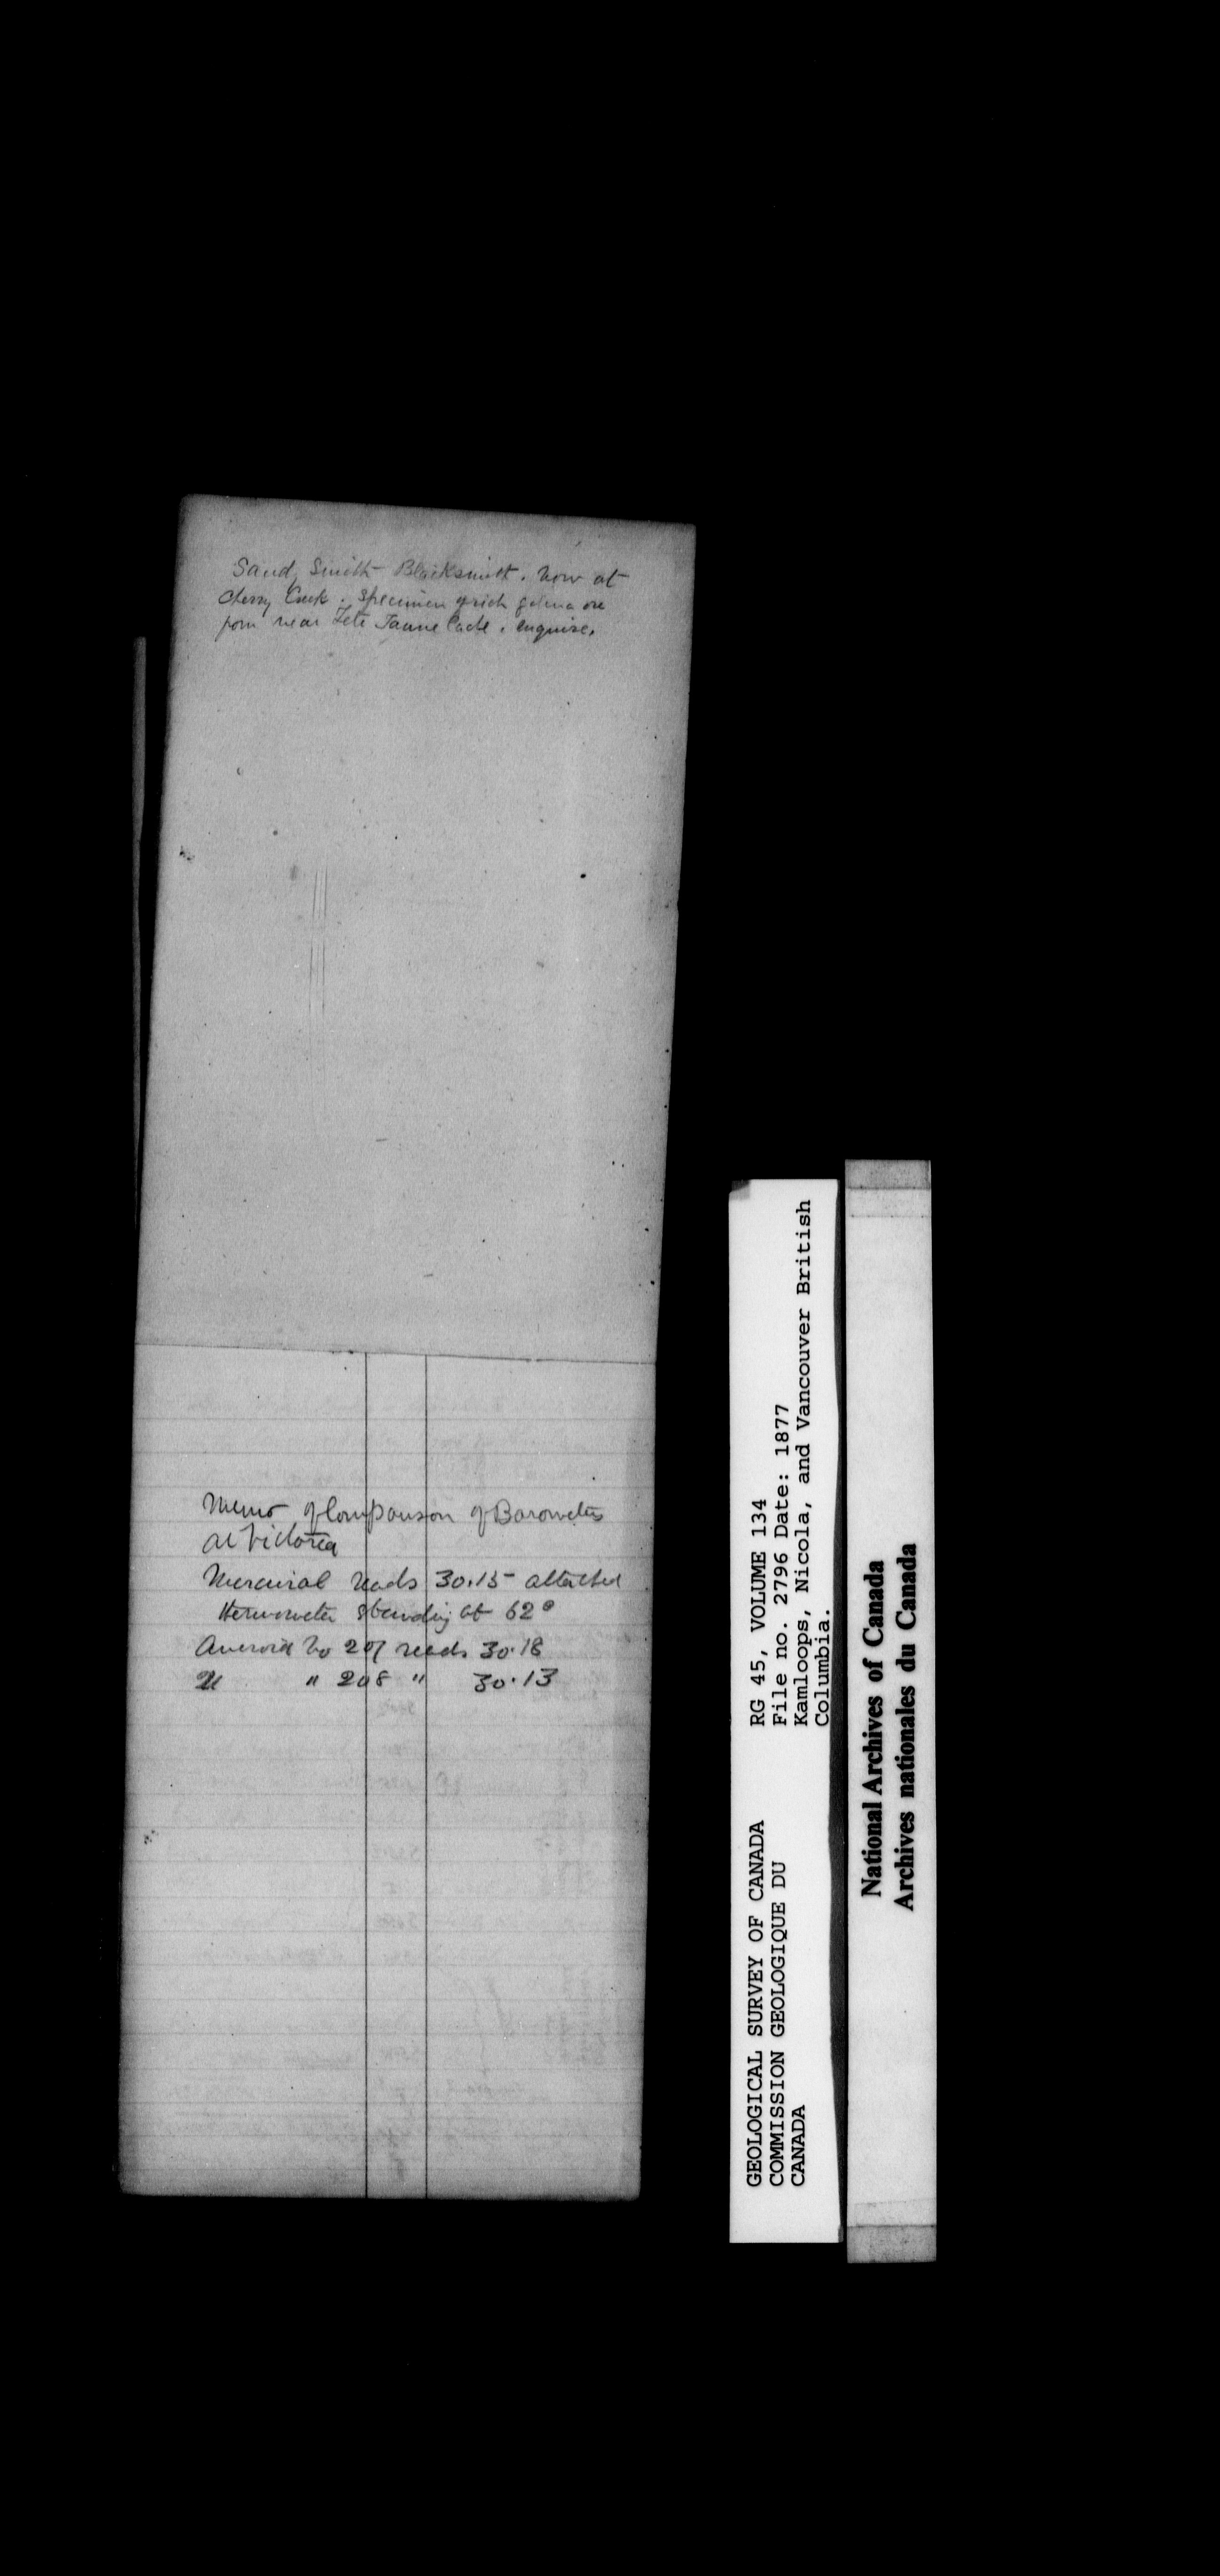 Sandy Smith Blacksmith. Now at
Cherry Creek. Specimen of rich galena ore
from near Tete Jaune Cache. enquire.
Memo of Comparison of Barometers
at Victoria
Mercurial reads 30.15 attached
thermometer standing at 62°
Aneroid No 207 reads 30.18
" " 208 " 30.13
GEOLOGICAL SURVEY OF CANADA
COMMISSION GEOLOGIQUE DU
CANADA
RG 45, VOLUME 134
File no. 2796 Date: 1877
Kamloops, Nicola, and Vancouver British
Columbia.
National Archives of Canada
Archives nationales du Canada